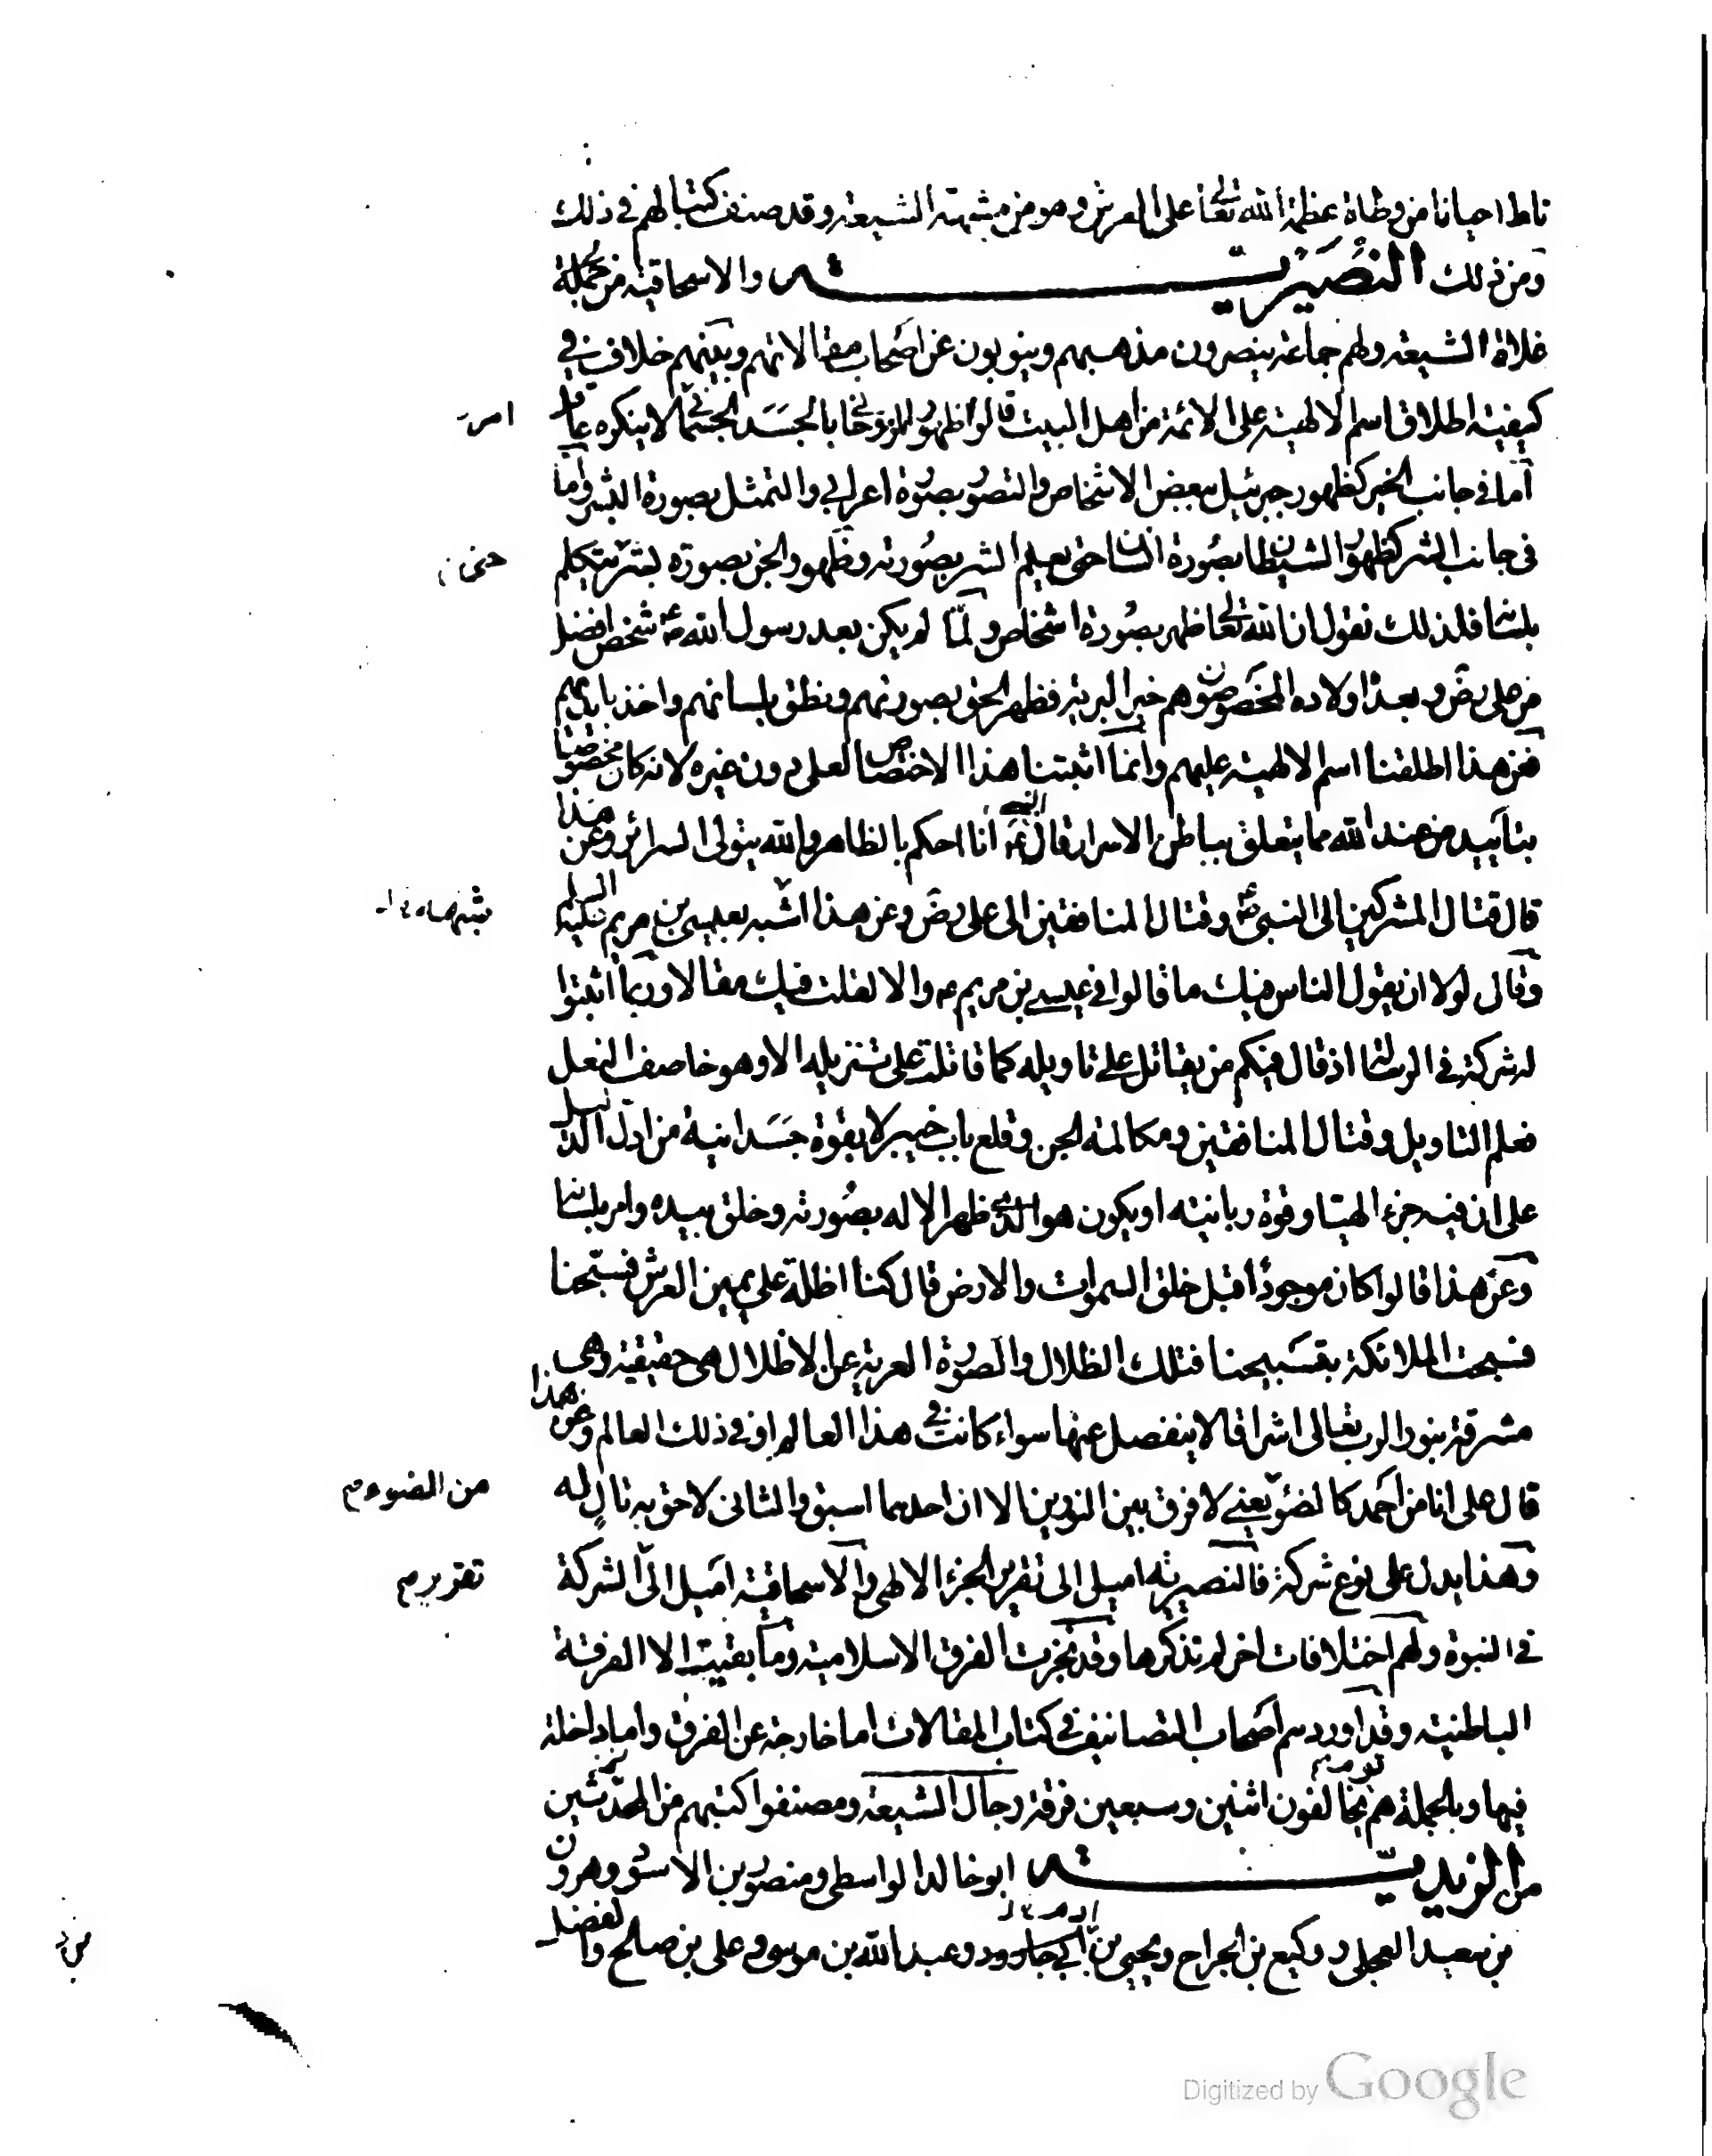 تاط احيانا من وطاة عظمة الله تعالى على العرش وهو من مشبهة الشيعة وقد صنف كتبا لهم في ذلك
ومن ذلك النُصَيْرية والاسحاقية من جملة
غلاة الشيعة ولهم جماعة ينصرون مذهبهم وينوبون عن اصحاب مقالاتهم وبينهم خلاف في
كيفية اطلاق اسم الالهية على الائمة من اهل البيت قالوا ظهور الروحاني بالجسد الجسماني لا ينكره عاقل
اما في جانب الخير كظهور جبرئيل ببعض الاشخاص والتصور بصورة اعرابي والتمثل بصورة البشر واما
في جانب الشر كظهور الشيطان بصورة انسان حتى يعلم الشر بصورته وظهور الجن بصورة بشر يتكلم
بلسانه فلذلك نقول ان الله تعالى ظهر بصورة اشخاص ولما لم يكن بعد رسول الله شخص افضل
من على رض وبعده اولاده المخصوصون وهم خير البرية فظهر الحق بصورتهم ونطق بلسانهم واخذ بايديهم
فعن هذا اطلقنا اسم الالهية عليهم وانما اثبتنا هذا الاختصاص لعلى دون غيره لانه كان مخصوصا
بتاييد من عند الله مما يتعلق بباطن الاسرار قال النبي عم انا احكم بالظاهر والله يتولى السرائر وعن هذا
قال قتال المشركين الى النبى وقتال المنافقين الى على رض وعن هذا اشبه بعيسى بن مريم عليه السلم
وقال لولا ان يقول الناس فيك ما قالوا في عيسى بن مريم عم والا لقلت فيك مقالا وربما اثبتوا
له شركة في الرسالة اذ قال فيكم من يقاتل على تاويله كما قاتلت على تنزيله الا وهو خاصف النعل
فعلم التاويل وقتال المنافقين ومكالمة الجن وقلع باب خيبر لا بقوة جسدانية من ادل الدليل
على ان فيه جزءا الهيا وقوة ربانية او يكون هو الذي ظهر الاله بصورته وخلق بيده وامر بلسانه
وعن هذا قالوا كان موجودا قبل خلق السموات والارض قال كنا اظلة على يمين العرش فسبحنا
فسبحت الملائكة بتسبيحنا فتلك الظلال والصورة العرية عن الاظلال هى حقيقية وهى
مشرقة بنور الرب تعالى اشراقا لا ينفصل عنها سواء كانت في هذا العالم او في ذلك العالم وعن هذا
قال على انا من احمد كالضوء يعني لا فرق بين النورين الا ان احدهما اسبق والثانى لاحق به تالٍ له
وهذا يدل على نوع شركة فالنصيرية اميل الى تقرير الجزء الالهى والاسحاقية اميل الى الشركة
في النبوة ولهم اختلافات اخر لم نذكرها وقد نجزت الفرق الاسلامية وما بقيت الا الفرقة
الباطنية وقد اوردهم اصحاب التصانيف في كتاب المقالات اما خارجة عن الفرق واما داخلة
فيها وبالجملة هم قوم يخالفون اثنين وسبعين فرقة رجال الشيعة ومصنفوا كتبهم من المحدثين
من الزيدية ابو خالد الواسطى ومنصور بن الاسود وهرون
بن سعيد العجلى ووكيع بن الجراح ويحيى بن ادم وعبد الله بن موسى وعلى بن صالح والفضل
من الضوء م
تقرير م